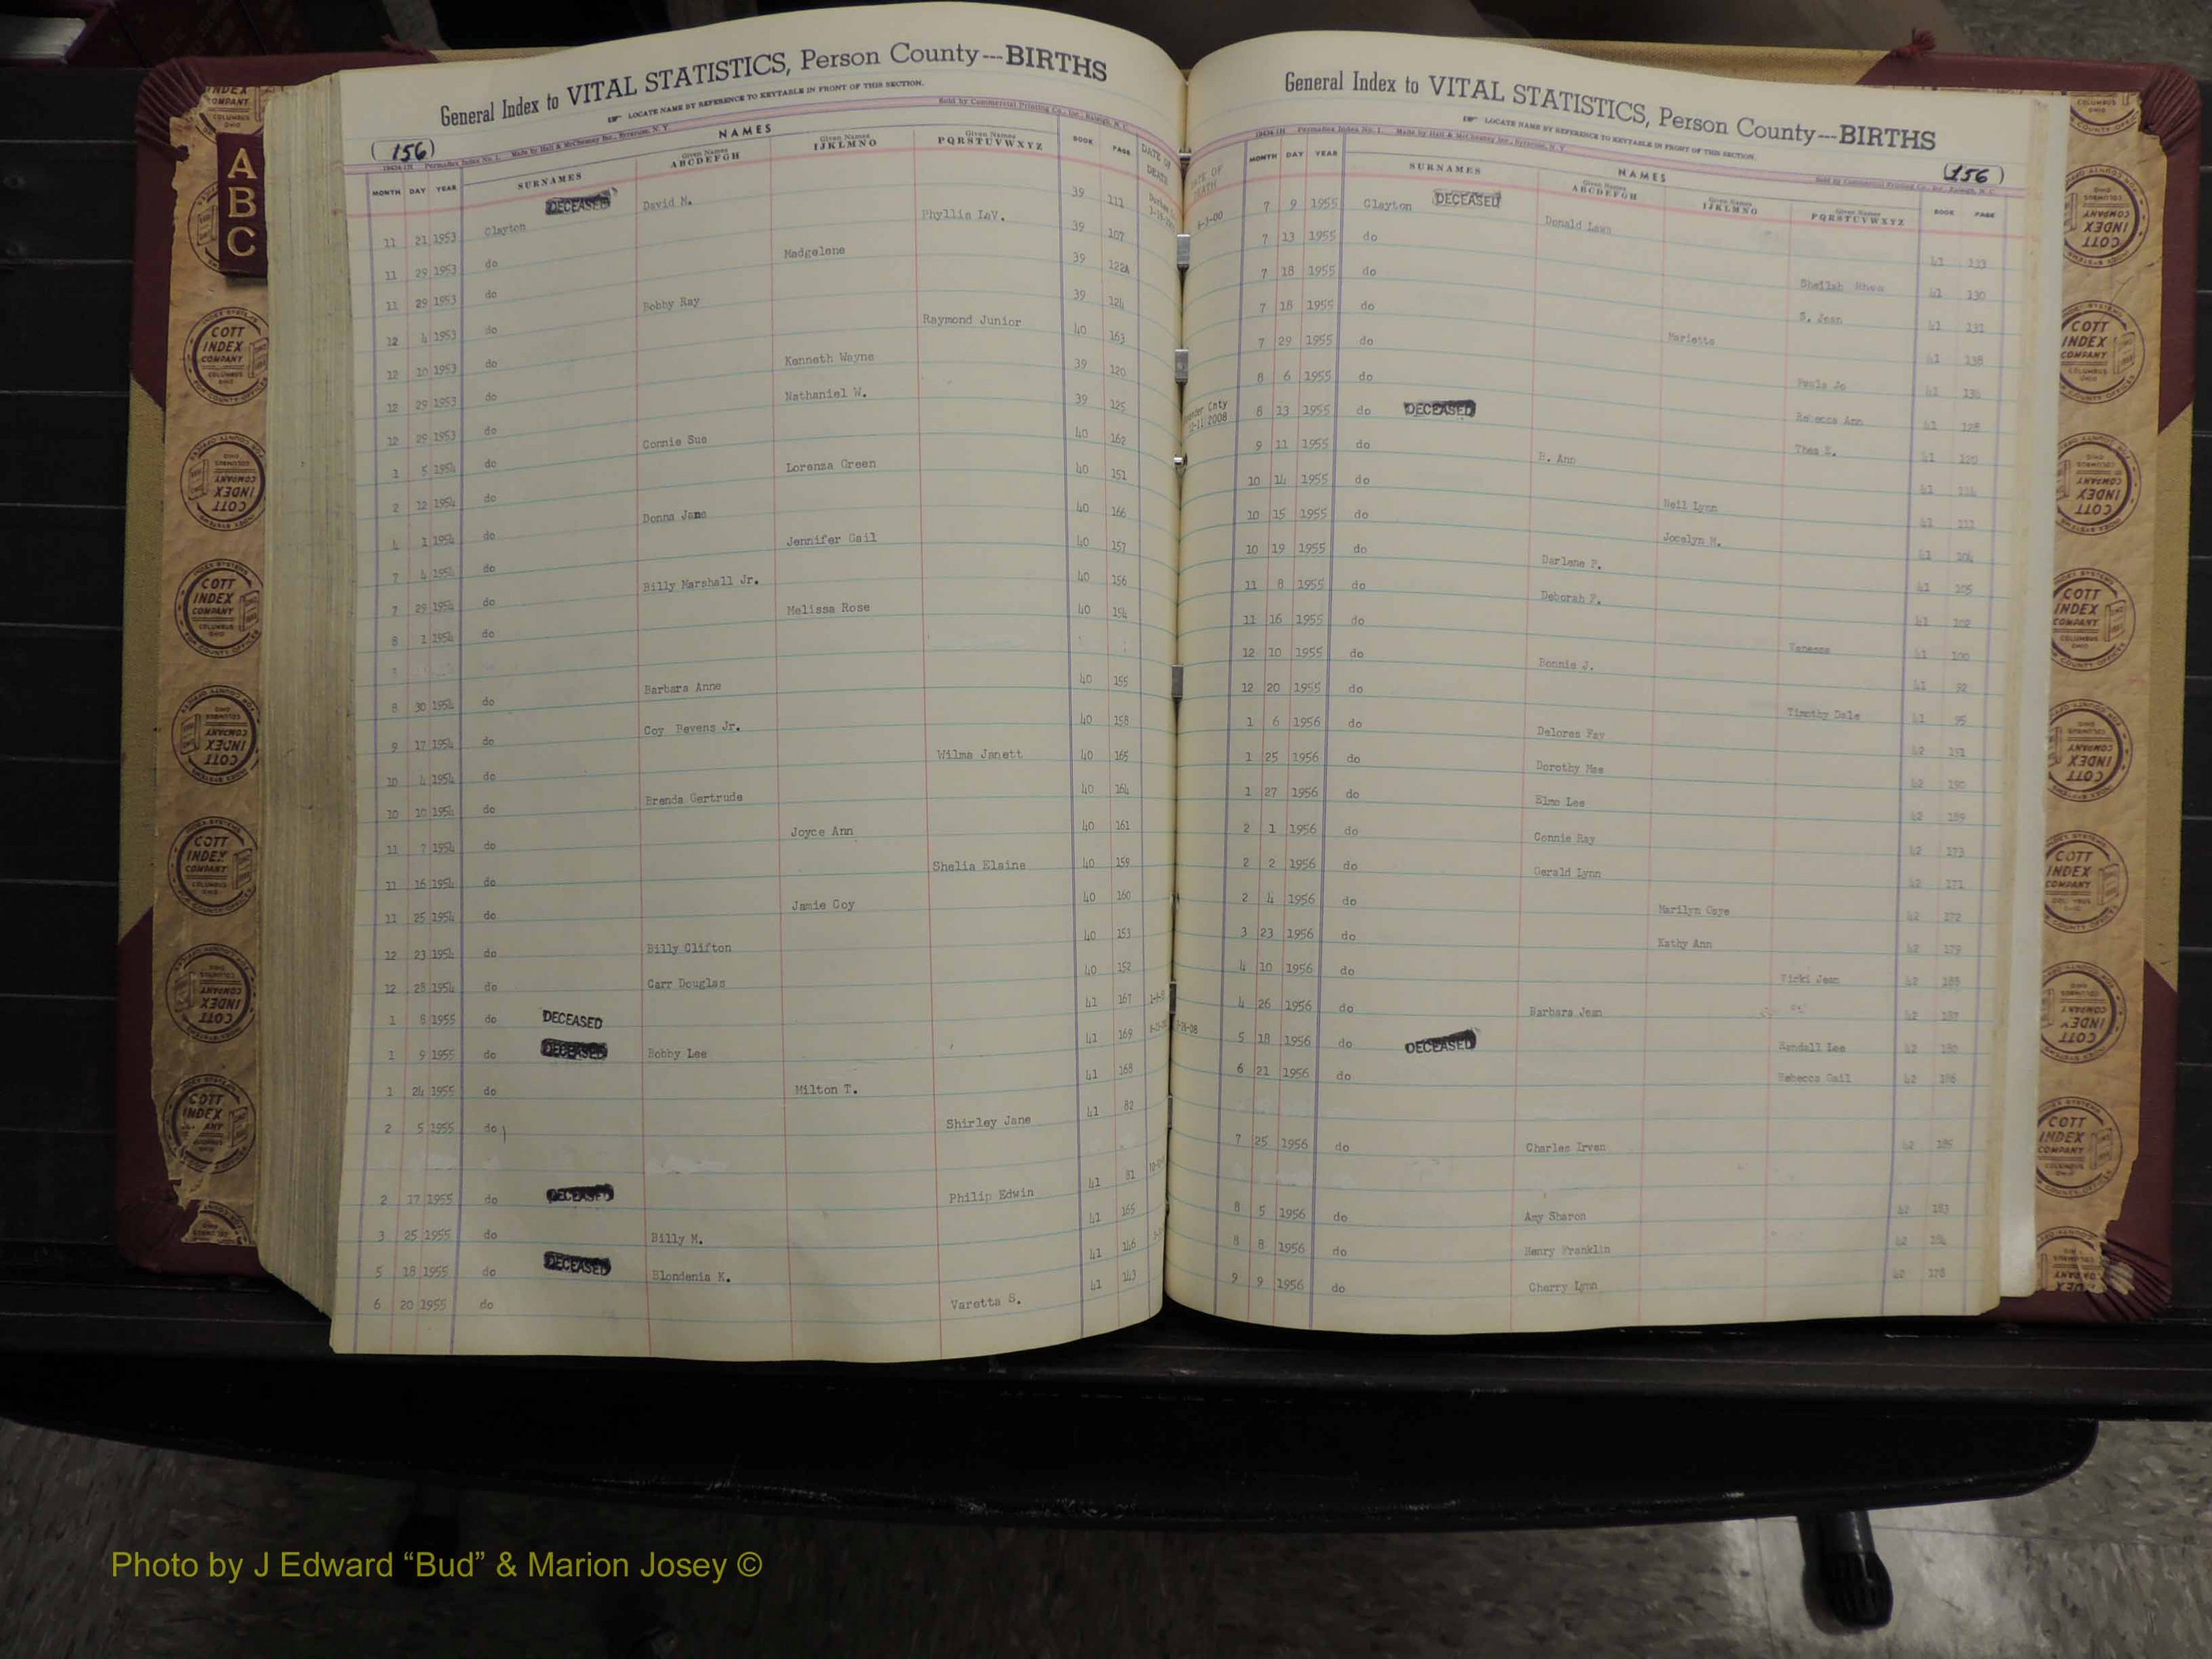 General Index to VITAL STATISTICS, Person County---BIRTHS
LOCATE NAME BY REFERENCE TO KEYTABLE IN FRONT OF THIS SECTION.
Sold by Commercial Printing Co., Inc., Raleigh, N. C.
(156) Made by Hall & McChesney Inc., Syracuse, N. Y.
NAMES
MONTH DAY YEAR SURNAMES Given Names ABCDEFGH Given Names IJKLMNO Given Names PQRSTUVWXYZ BOOK PAGE DATE OF DEATH
11 21 1953 Clayton DECEASED David N. 39 111
11 29 1953 do Phyllis LaV. 39 107
11 29 1953 do Madgelene 39 122A
12 4 1953 do Bobby Ray 39 124
12 10 1953 do Raymond Junior 40 163
12 29 1953 do Kenneth Wayne 39 120
12 29 1953 do Nathaniel W. 39 125
1 5 1954 do Connie Sue 40 162
2 12 1954 do Lorenza Green 40 151
4 1 1954 do Donna Jane 40 166
7 4 1954 do Jennifer Gail 40 157
7 29 1954 do Billy Marshall Jr. 40 156
8 1 1954 do Melissa Rose 40 154
8 30 1954 do Barbara Anne 40 155
9 17 1954 do Coy Bevens Jr. 40 158
10 4 1954 do Wilma Janett 40 165
10 10 1954 do Brenda Gertrude 40 164
11 7 1954 do Joyce Ann 40 161
11 16 1954 do Shelia Elaine 40 159
11 25 1954 do Jamie Coy 40 160
12 23 1954 do Billy Clifton 40 153
12 28 1954 do Carr Douglas 40 152
1 8 1955 do DECEASED 41 167
1 9 1955 do DECEASED Bobby Lee 41 169
1 24 1955 do Milton T. 41 168
2 5 1955 do Shirley Jane 41 82
2 17 1955 do DECEASED Philip Edwin 41 81
3 25 1955 do Billy M. 41 165
5 18 1955 do DECEASED Blondenia K. 41 146
6 20 1955 do Varetta S. 41 143
General Index to VITAL STATISTICS, Person County---BIRTHS
LOCATE NAME BY REFERENCE TO KEYTABLE IN FRONT OF THIS SECTION.
Made by Hall & McChesney Inc., Syracuse, N. Y.
(156)
NAMES
DATE OF DEATH MONTH DAY YEAR SURNAMES Given Names ABCDEFGH Given Names IJKLMNO Given Names PQRSTUVWXYZ BOOK PAGE
7 9 1955 Clayton DECEASED Donald Lawn 41 133
7 13 1955 do Sheilah Rhea 41 130
7 18 1955 do S. Jean 41 131
7 18 1955 do Marietta 41 138
7 29 1955 do Paula Jo 41
8 6 1955 do Rebecca Ann 41 128
8 13 1955 do DECEASED Thea E. 41 120
9 11 1955 do B. Ann 41
10 14 1955 do Neil Lynn 41
10 15 1955 do Jocelyn M. 41 104
10 19 1955 do Darlene F. 41 105
11 8 1955 do Deborah F. 41 102
11 16 1955 do Vanessa 41 100
12 10 1955 do Bonnie J. 41 92
12 20 1955 do Timothy Dale 41 95
1 6 1956 do Delores Fay 42 191
1 25 1956 do Dorothy Mae 42 190
1 27 1956 do Elmo Lee 42 189
2 1 1956 do Connie Ray 42 173
2 2 1956 do Gerald Lynn 42 171
2 4 1956 do Marilyn Gaye 42 172
3 23 1956 do Kathy Ann 42 179
4 10 1956 do Vicki Jean 42 188
4 26 1956 do Barbara Jean 42 187
5 18 1956 do DECEASED Randall Lee 42 180
6 21 1956 do Rebecca Gail 42 186
7 25 1956 do Charles Irven 42 185
8 5 1956 do Amy Sharon 42 183
8 8 1956 do Henry Franklin 42 184
9 9 1956 do Cherry Lynn 42 178
A
B
C
COTT
INDEX
COMPANY
COLUMBUS
OHIO
Photo by J Edward “Bud” & Marion Josey ©